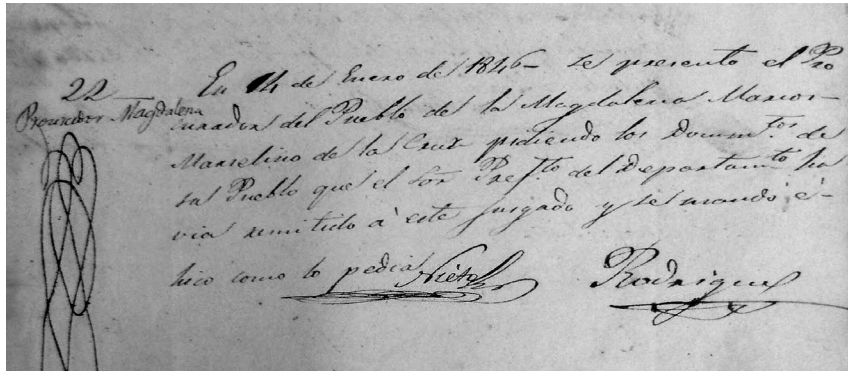 22
Procurador Magdalena
En 14 de Enero de 1846– se presento el Pro
curador del Pueblo de la Magdalena Marior
Marselino de la Cruz pidiendo los Documtos de
su Pueblo que el Sor Prefto del Departamto ha
via remitido à este Jusgado y se mandó é
hico como lo pedia Nieto
Rodrigue